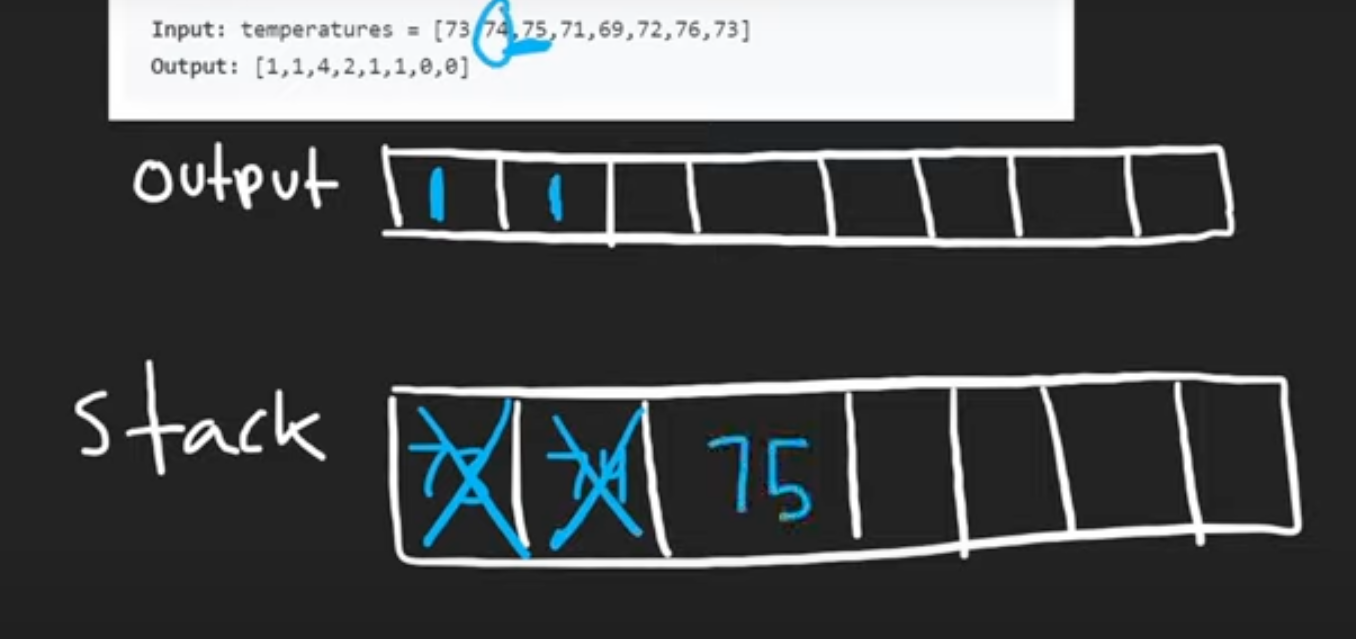 Input: temperatures = [73,74,75,71,69,72,76,73]
Output: [1,1,4,2,1,1,0,0]
output 1 1
Stack 73 74 75